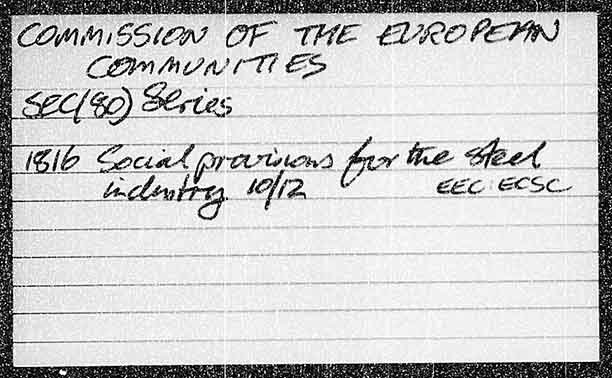 COMMISSION OF THE EUROPEAN
COMMUNITIES
SEC(80) Series
1816 Social provisions for the steel
industry 10/12 EEC: ECSC